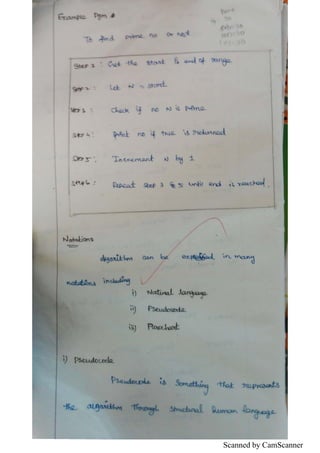 Example Pgm
To find prime no or not
Step 1 : Get the start & end of range
Step 2 : Let N = start
Step 3 : Check if no N is prime
Step 4 : Print no if true is returned
Step 5 : Increment N by 1
Step 6 : Repeat Step 3 & 5 until end is reached.
Notations
Algorithm can be expressed in many
notations including
i) Natural language
ii) Pseudocode
iii) Flowchart
i) Pseudocode
Pseudocode is something that represents
the algorithm through structural human language
Scanned by CamScanner